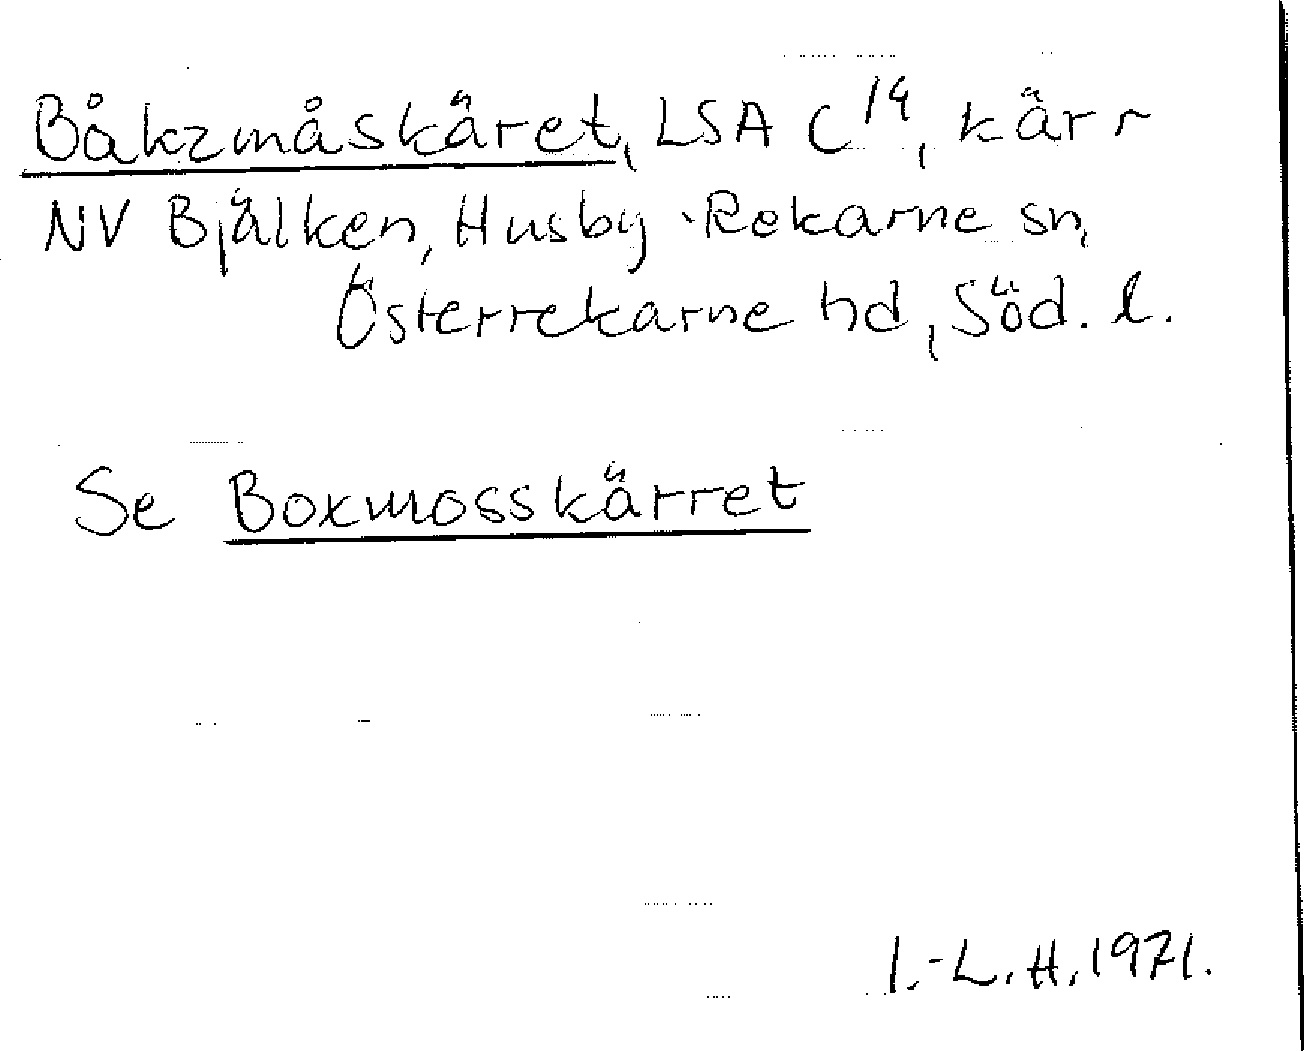 Båkzmåskäret, LSA C 14, kärr
NV Bjälken, Husby-Rekarne sn,
Österrekarne hd, Söd. l.
Se Boxmosskärret
I.-L. H. 1971.